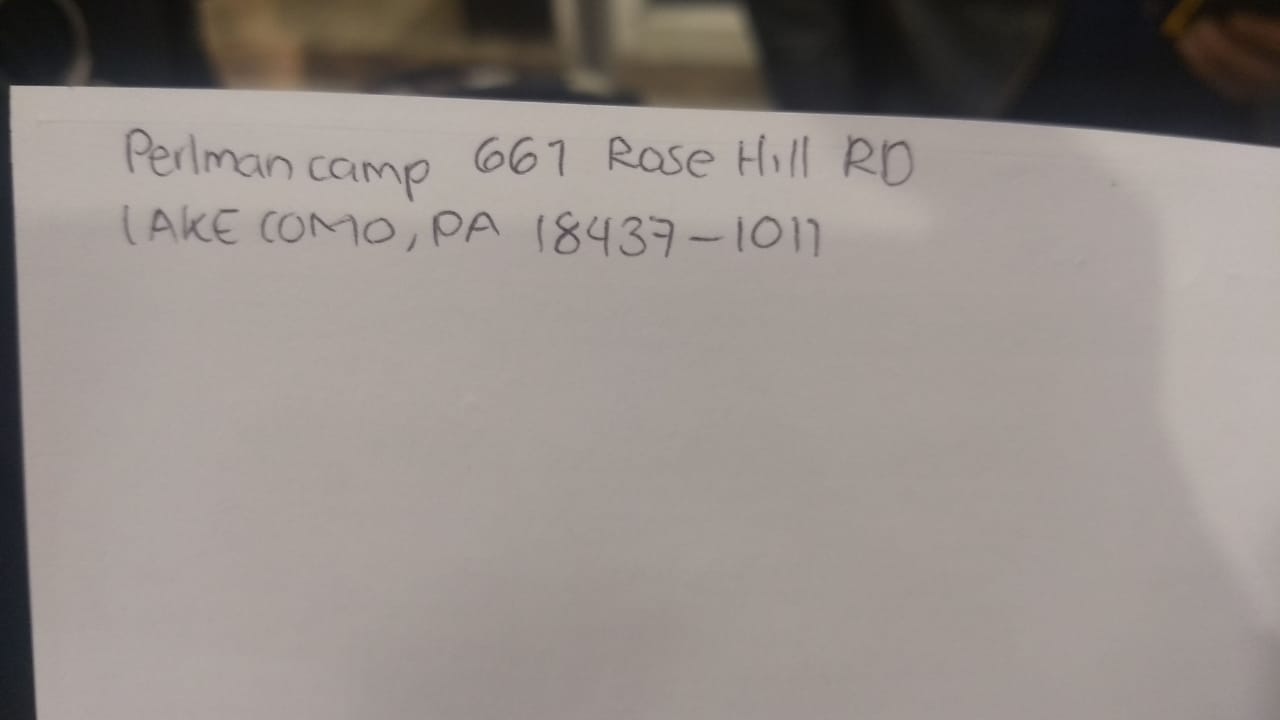 Perlman camp 661 Rose Hill RD
LAKE COMO, PA 18437-1011